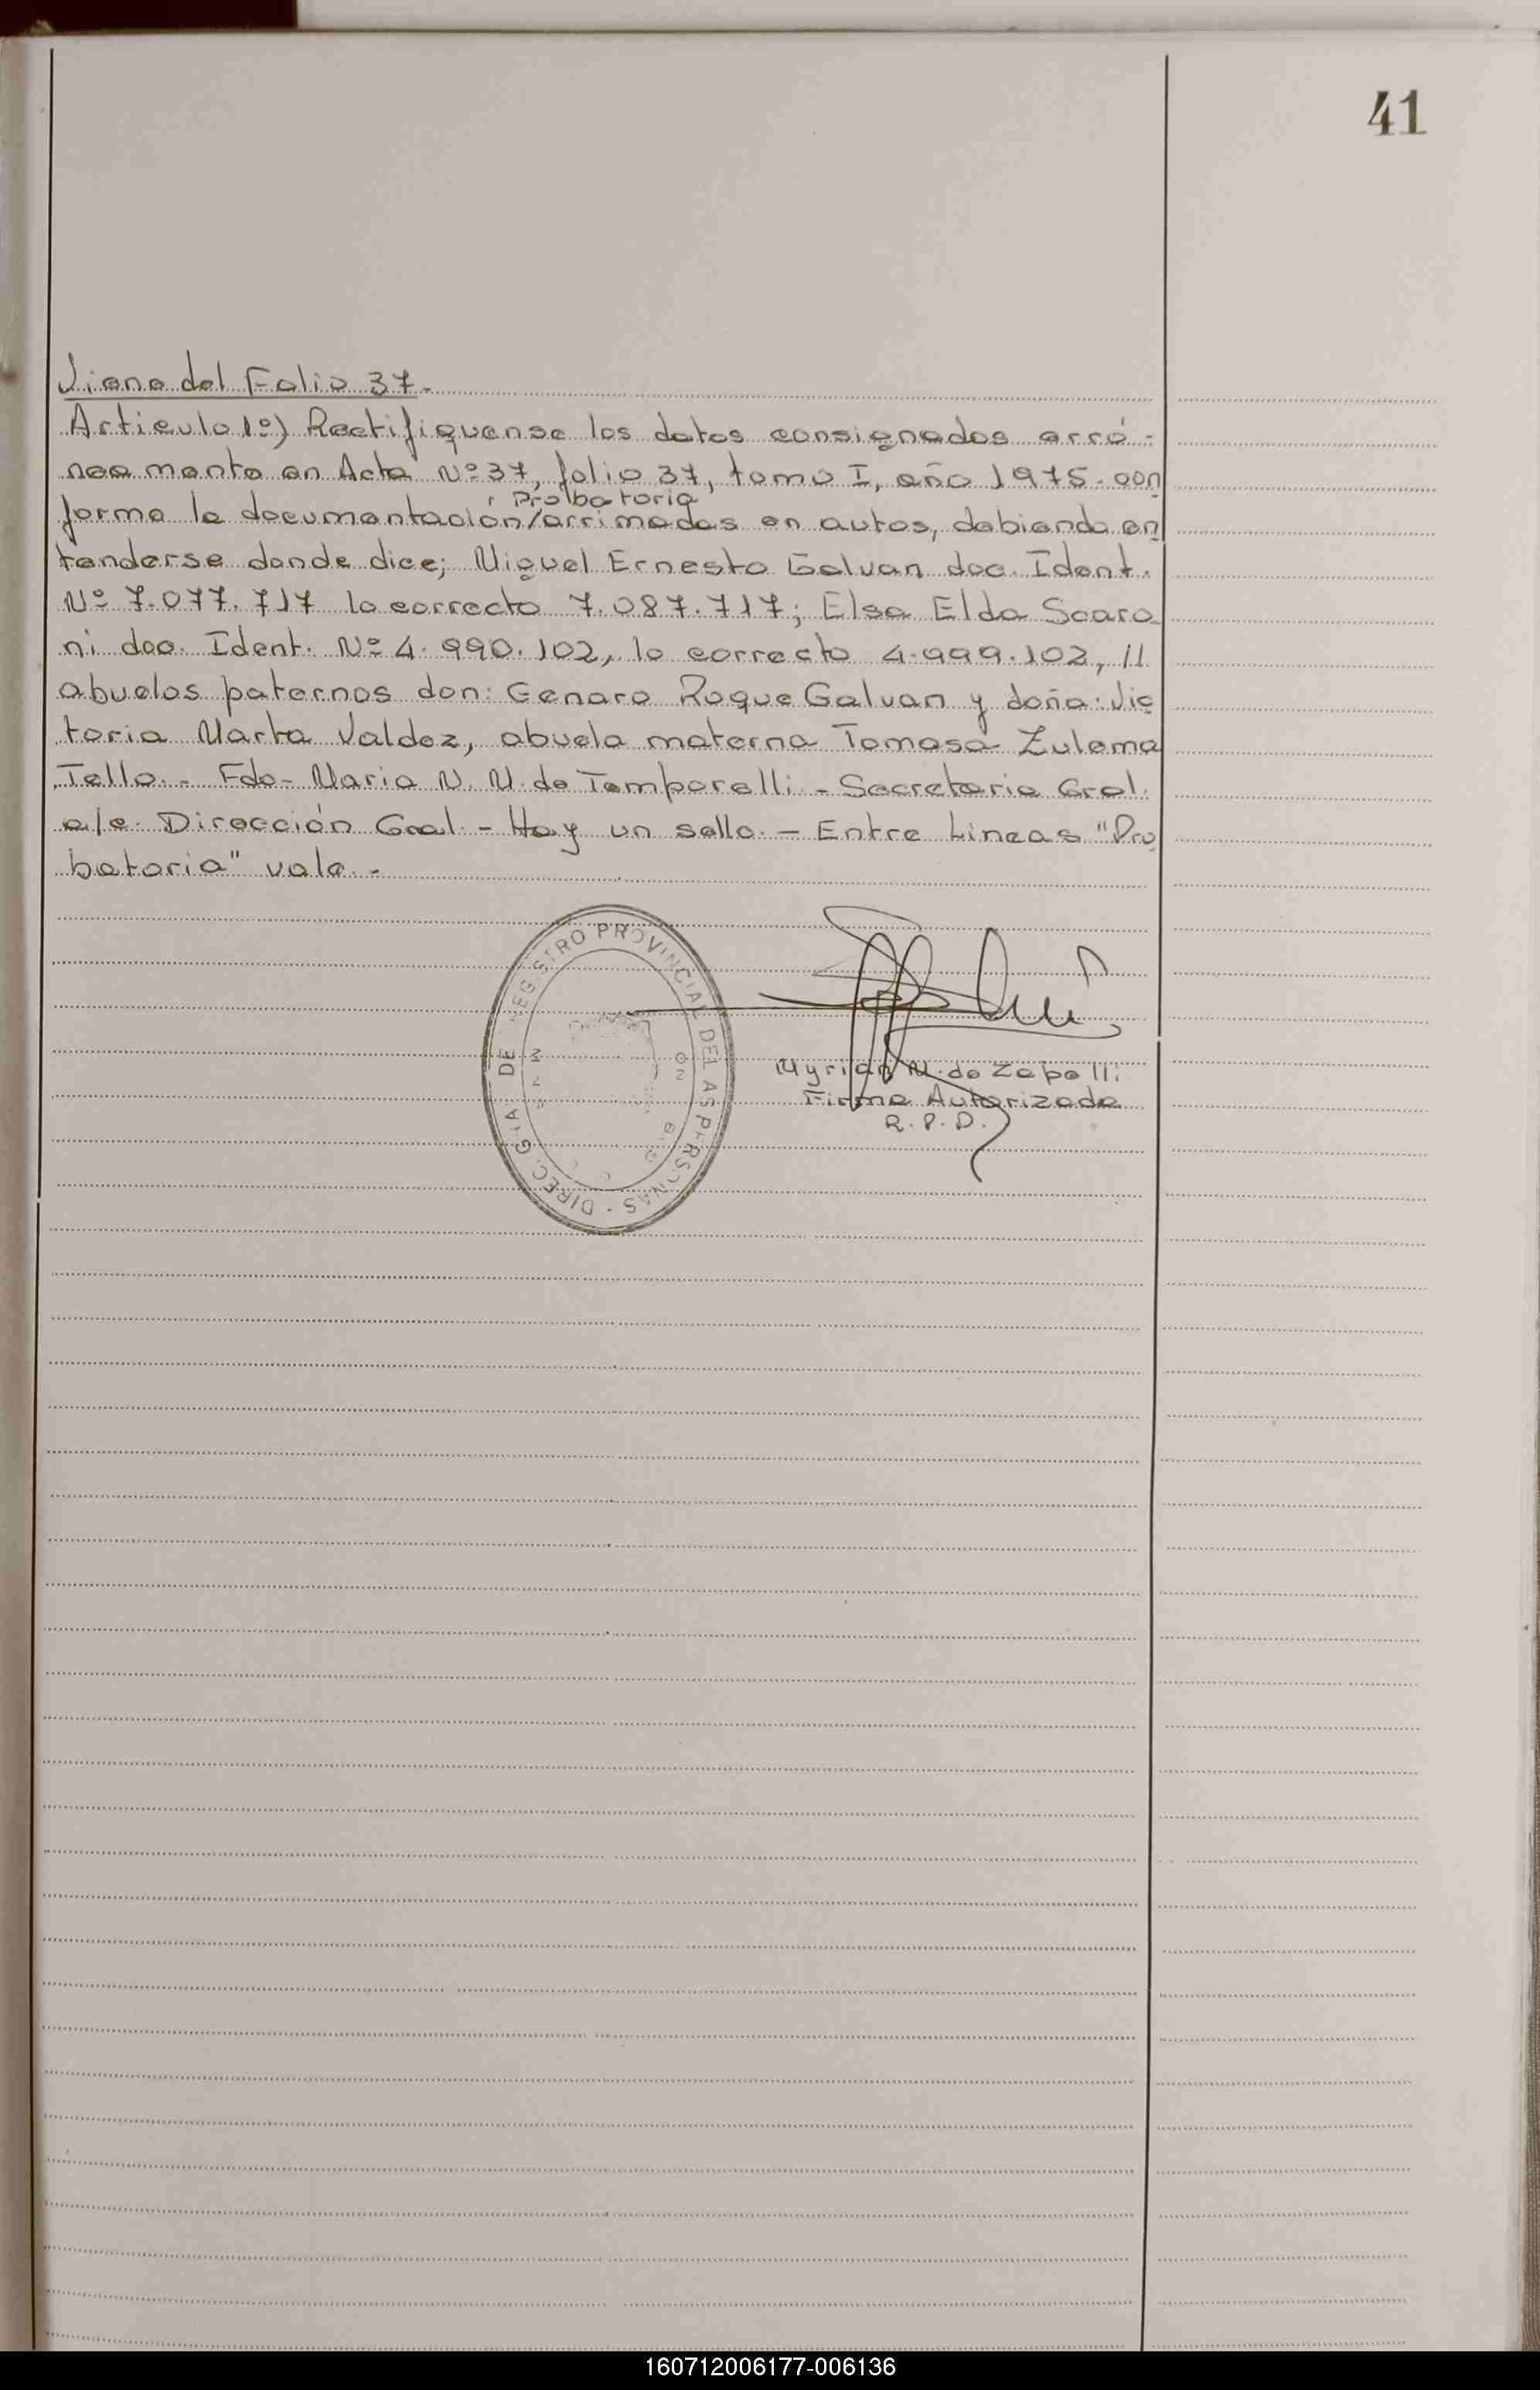 41
Viene del Folio 37.-
Articulo 1º) Rectifiquense los datos consignados erró-
neamente en Acta Nº 37, folio 37, tomo I, año 1975. con
Probatoria
forme la documentación/arrimadas en autos, debiendo en
tenderse donde dice; Miguel Ernesto Galvan doc. Ident.
Nº 7.077.717 lo correcto 7.087.717; Elsa Elda Scaro
ni doc. Ident. Nº 4.990.102, lo correcto 4.999.102, //
abuelos paternos don: Genaro Roque Galvan y doña: Vic
toria Marta Valdez, abuela materna Tomasa Zulema
Tello.- Fdo- Maria N. N. de Temporelli - Secretaria Gral.
a/c. Dirección Gral. - Hay un sello. - Entre Lineas "Pro
batoria" vale.-
DIREC. GRAL. DE REGISTRO PROVINCIAL DE LAS PERSONAS
Myrian N. de Zapelli
Firma Autorizada
R. P. D.
160712006177-006136